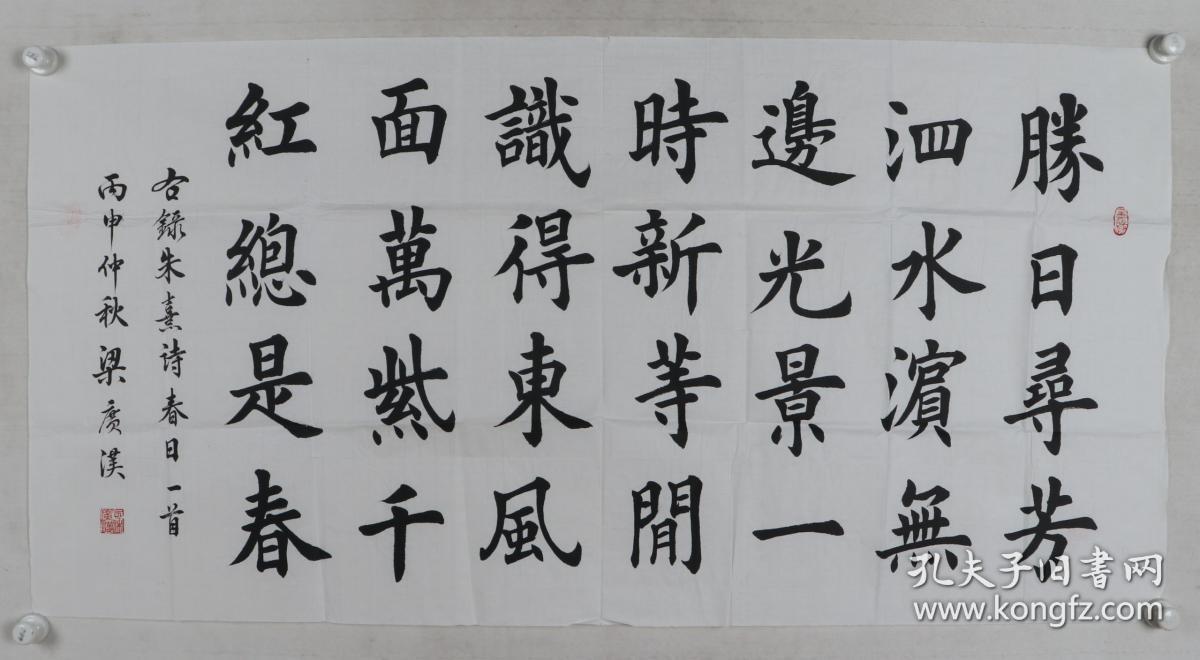 勝日尋芳
泗水濵無
邊光景一
時新等閒
識得東風
面萬紫千
紅緫是春
右録朱熹诗春日一首
丙申仲秋梁廣漢
孔夫子旧書网
www.kongfz.com